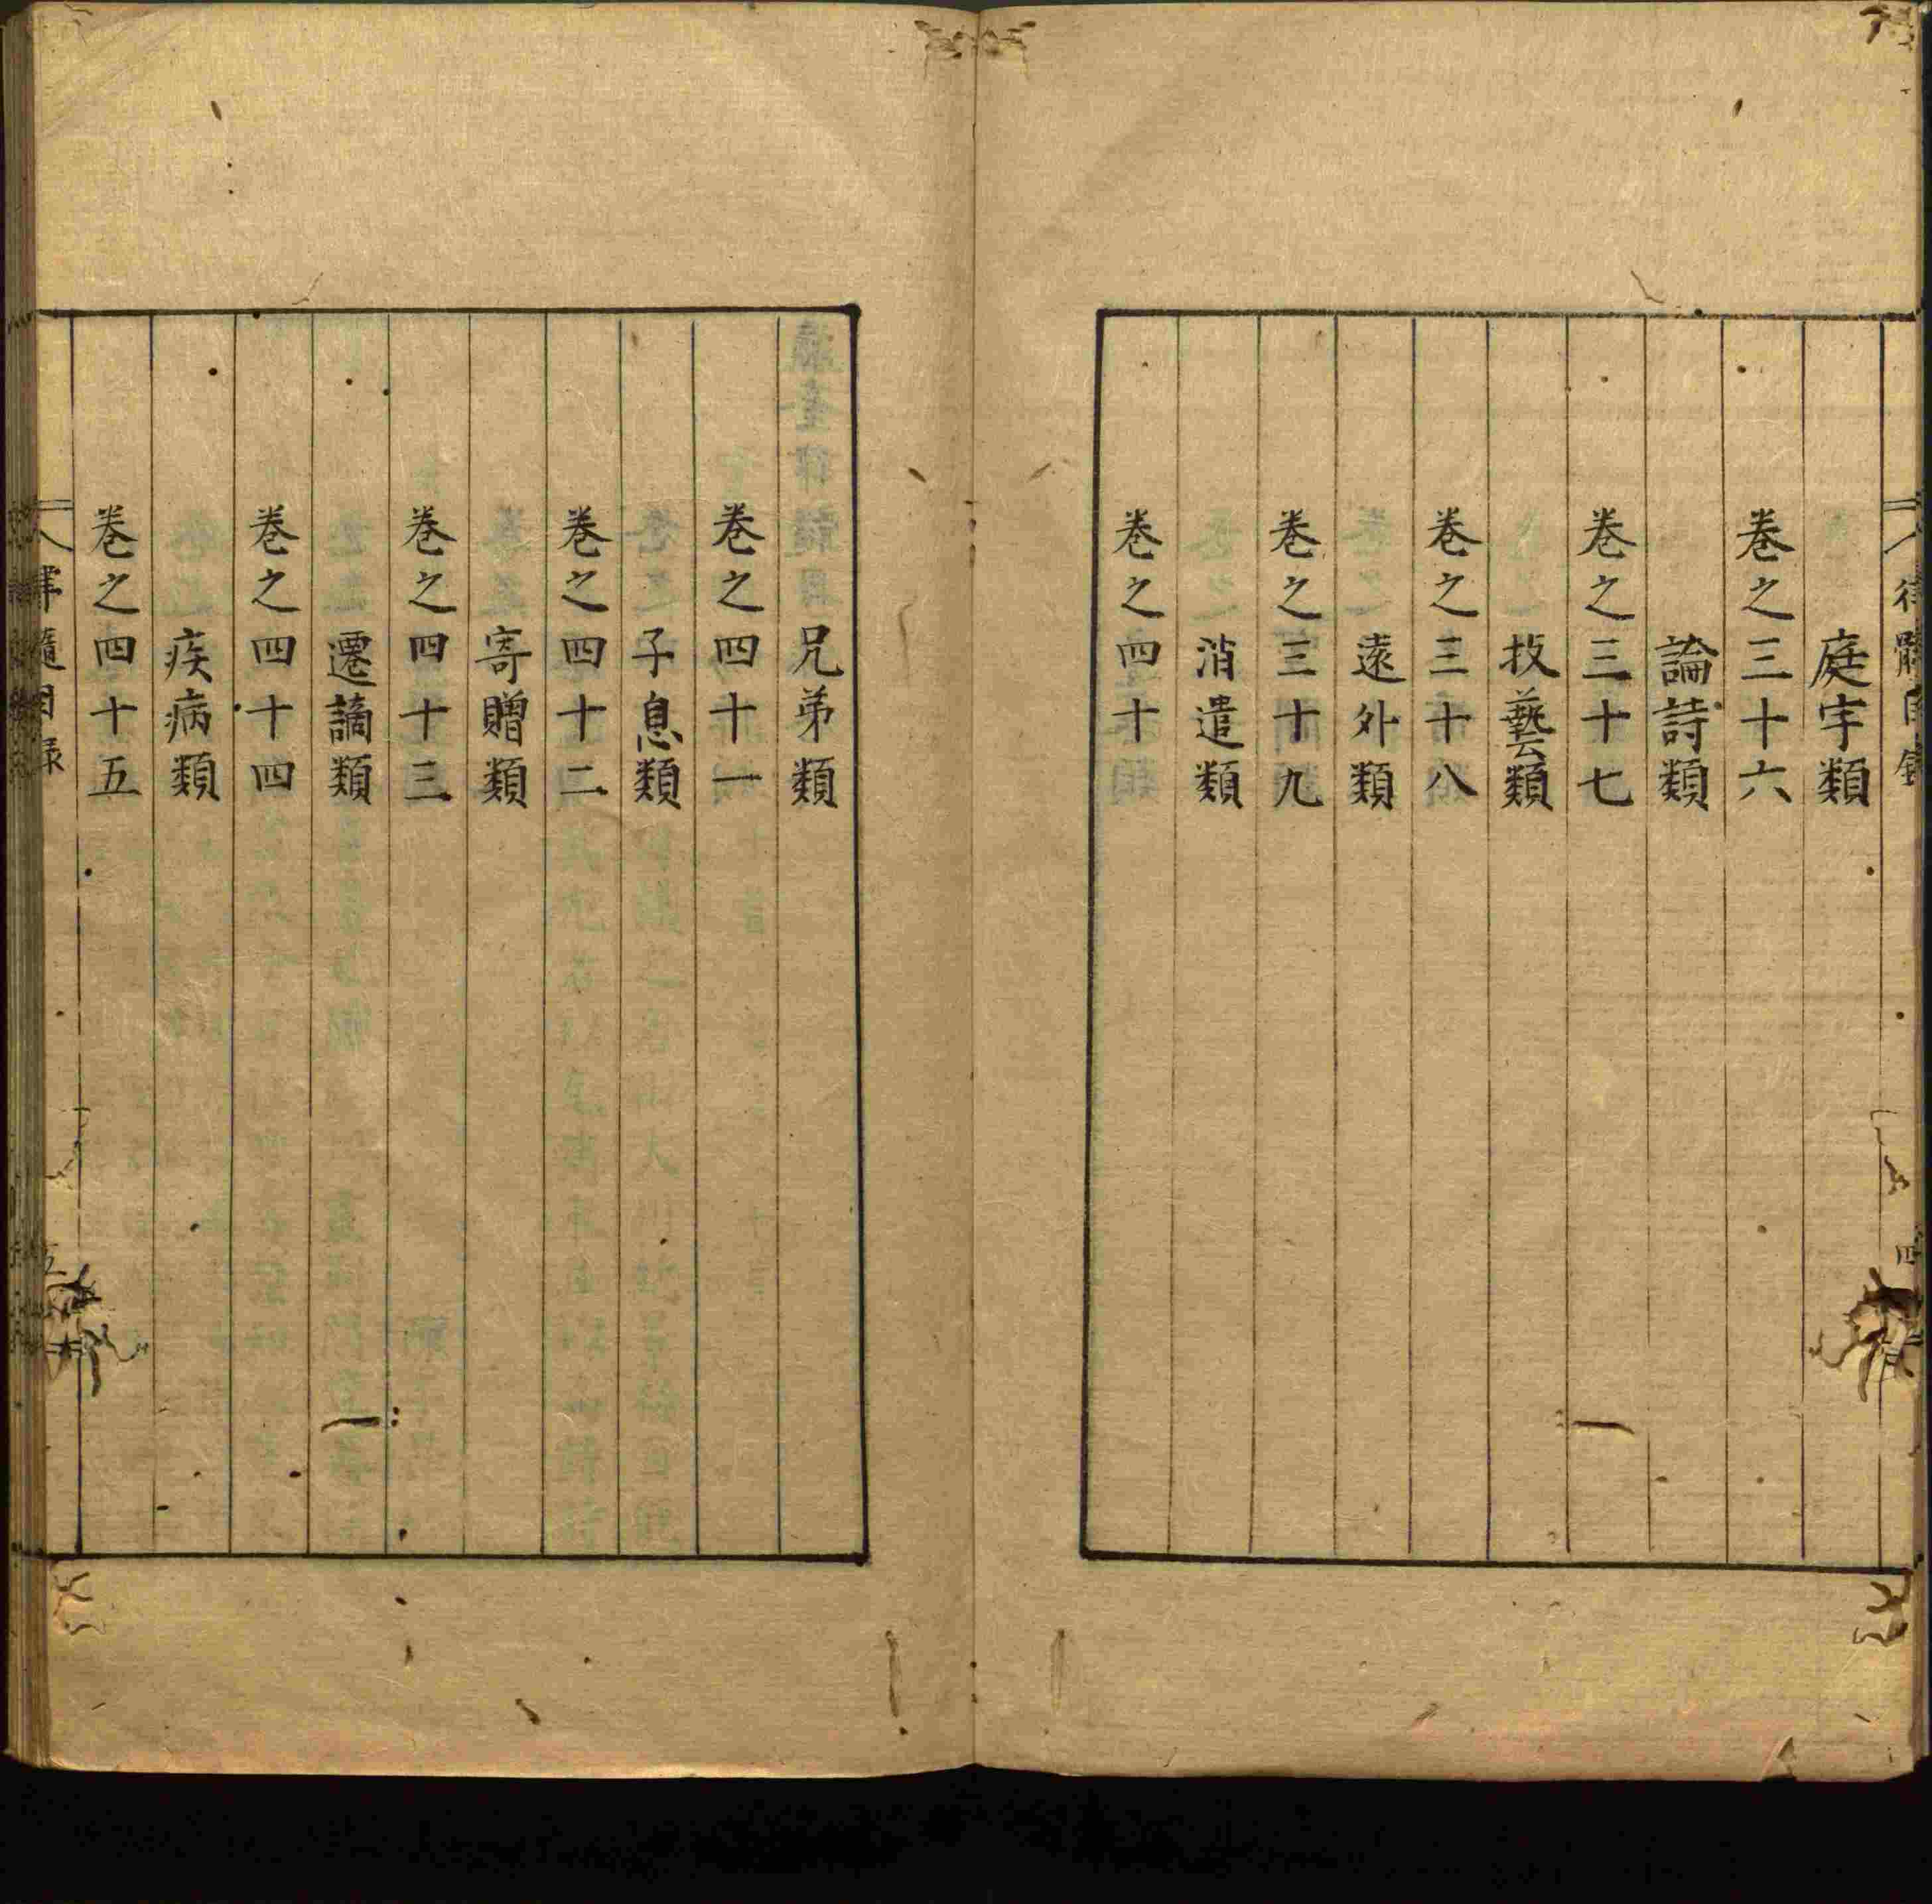 律髓目錄
四
庭宇類
卷之三十六
論詩類
卷之三十七
技藝類
卷之三十八
遠外類
卷之三十九
消遣類
卷之四十
兄弟類
卷之四十一
子息類
卷之四十二
寄贈類
卷之四十三
遷謫類
卷之四十四
疾病類
卷之四十五
律髓目錄
五